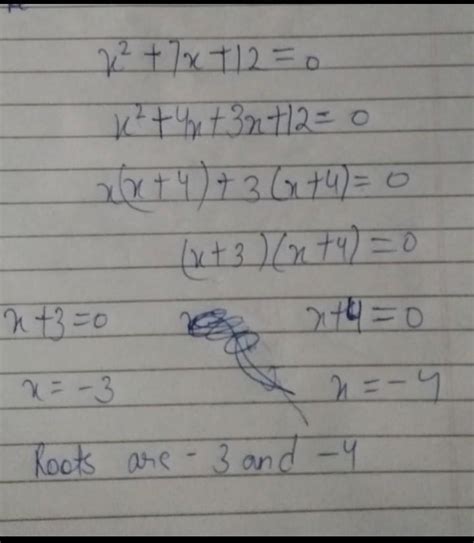 x² + 7x + 12 = 0
x² + 4x + 3x + 12 = 0
x(x + 4) + 3(x + 4) = 0
(x + 3)(x + 4) = 0
x + 3 = 0 x + 4 = 0
x = -3 x = -4
Roots are -3 and -4